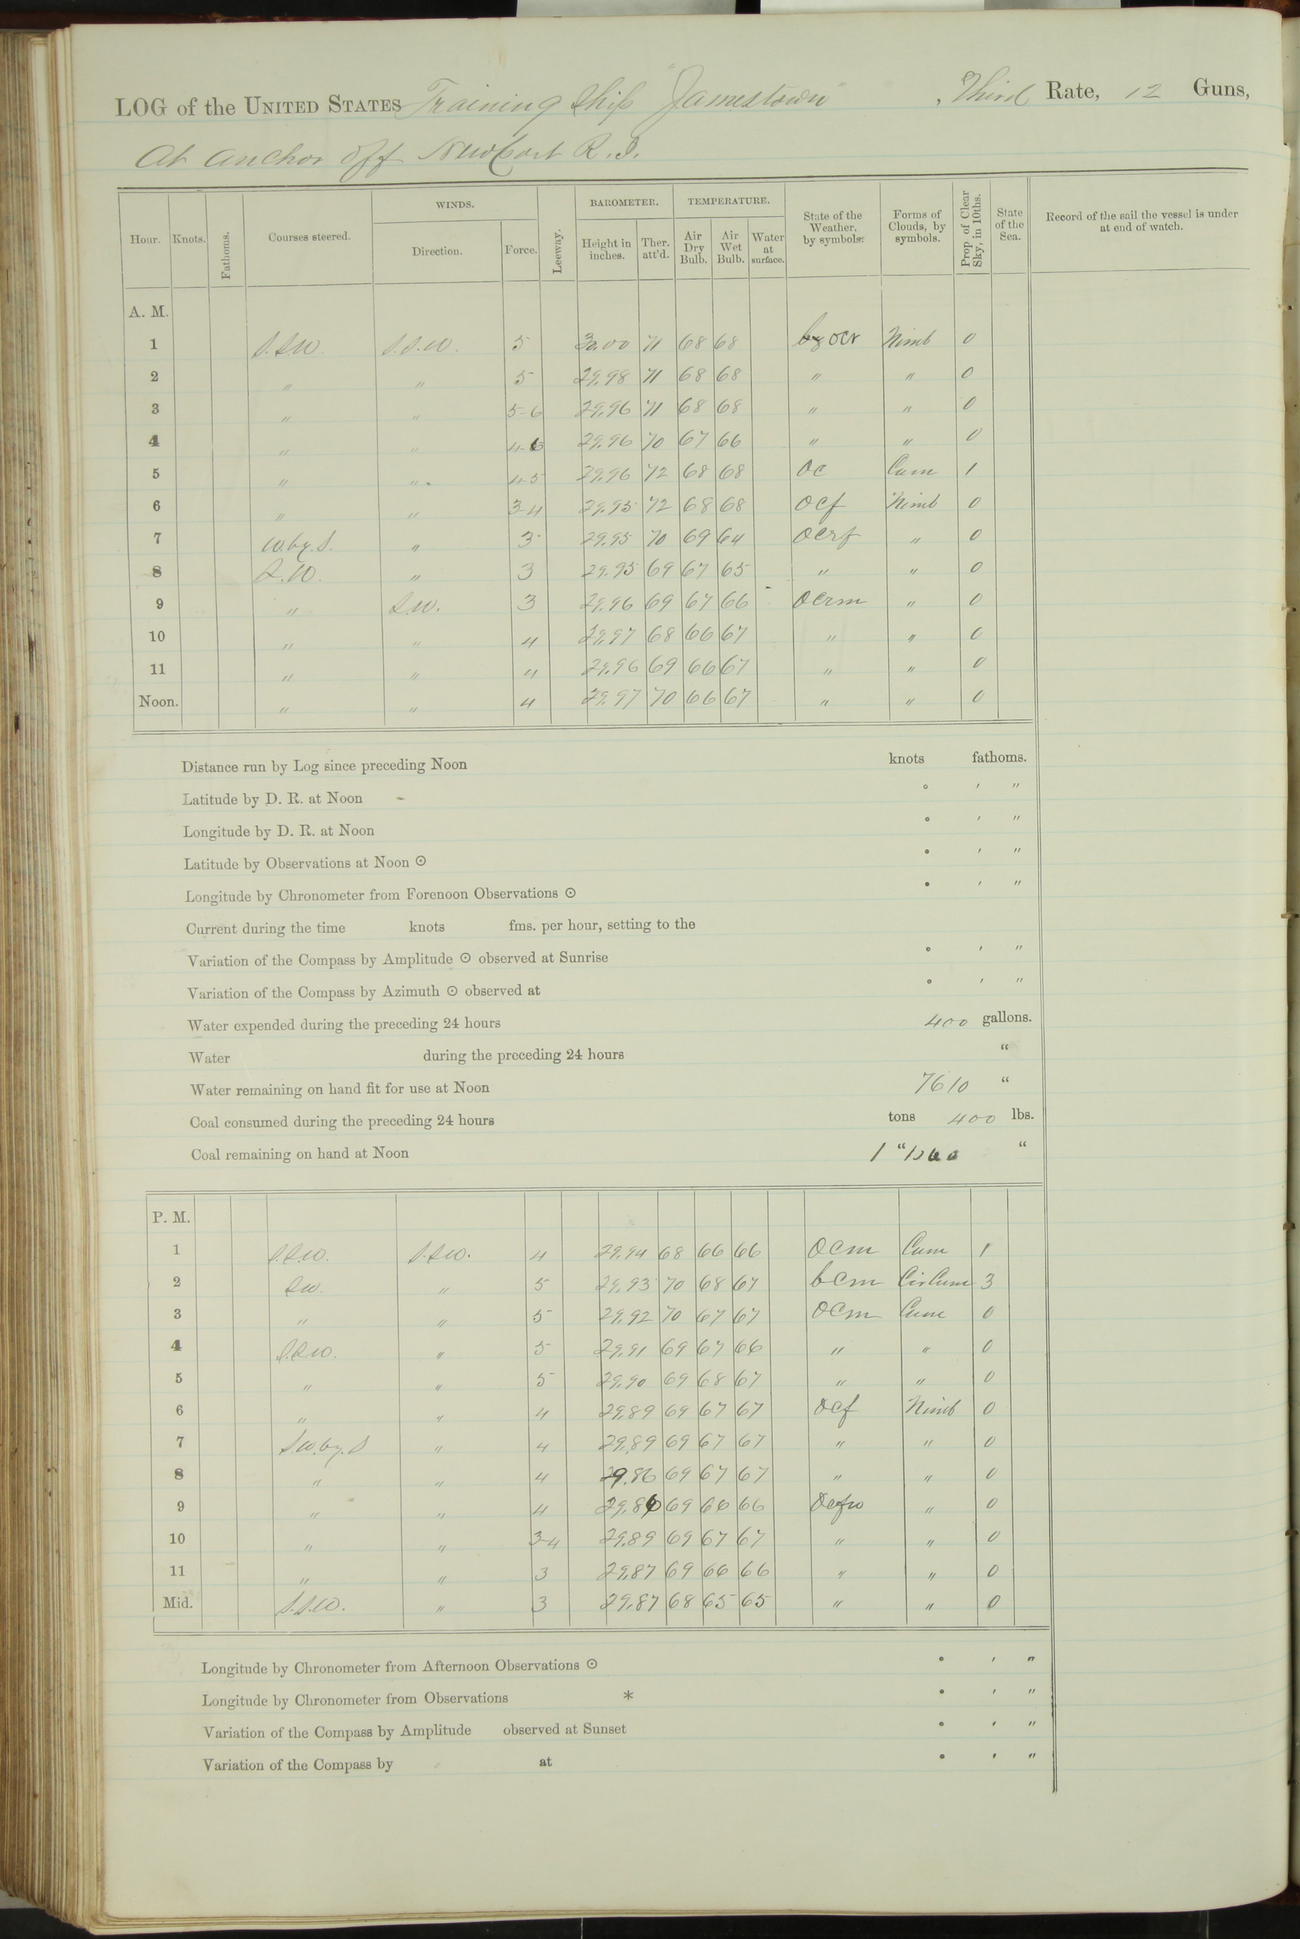 LOG of the UNITED STATES Training Ship "Jamestown", Third Rate, 12 Guns,
At anchor off Newport R.I.
Hour. Knots. Fathoms. Courses steered. WINDS. Direction. Force. Leeway. BAROMETER. Height in inches. Ther. att'd. TEMPERATURE. Air Dry Bulb. Air Wet Bulb. Water at surface. State of the Weather, by symbols. Forms of Clouds, by symbols. Prop. of Clear Sky, in 10ths. State of the Sea. Record of the sail the vessel is under at end of watch.
A. M.
1 S.S.W. S.S.W. 5 30.00 71 68 68 ocr Nimb 0
2 " " 5 29.98 71 68 68 " " 0
3 " " 5-6 29.96 71 68 68 " " 0
4 " " 4-6 29.96 70 67 66 " " 0
5 " " 4-5 29.96 72 68 68 oc Cum 1
6 " " 3-4 29.95 72 68 68 ocf Nimb 0
7 W.by.S. " 3 29.95 70 69 64 ocrf " 0
8 S.W. " 3 29.95 69 67 65 " " 0
9 " S.W. 3 29.96 69 67 66 ocrm " 0
10 " " 4 29.97 68 66 67 " " 0
11 " " 4 29.96 69 66 67 " " 0
Noon. " " 4 29.97 70 66 67 " " 0
Distance run by Log since preceding Noon knots fathoms.
Latitude by D. R. at Noon ° ′ ″
Longitude by D. R. at Noon ° ′ ″
Latitude by Observations at Noon ☉ ° ′ ″
Longitude by Chronometer from Forenoon Observations ☉ ° ′ ″
Current during the time knots fms. per hour, setting to the
Variation of the Compass by Amplitude ☉ observed at Sunrise ° ′ ″
Variation of the Compass by Azimuth ☉ observed at ° ′ ″
Water expended during the preceding 24 hours 400 gallons.
Water during the preceding 24 hours "
Water remaining on hand fit for use at Noon 7610 "
Coal consumed during the preceding 24 hours tons 400 lbs.
Coal remaining on hand at Noon 1 " "
P. M.
1 S.S.W. S.S.W. 4 29.94 68 66 66 ocm Cum 1
2 SW. " 5 29.93 70 68 67 bcm CirCum 3
3 " " 5 29.92 70 67 67 ocm Cum 0
4 S.S.W. " 5 29.91 69 67 66 " " 0
5 " " 5 29.90 69 68 67 " " 0
6 " " 4 29.89 69 67 67 ocf Nimb 0
7 SW.by.S " 4 29.89 69 67 67 " " 0
8 " " 4 29.86 69 67 67 " " 0
9 " " 4 29.86 69 66 66 " 0
10 " " 3-4 29.89 69 67 67 " " 0
11 " " 3 29.87 69 66 66 " " 0
Mid. S.S.W. " 3 29.87 68 65 65 " " 0
Longitude by Chronometer from Afternoon Observations ☉ ° ′ ″
Longitude by Chronometer from Observations * ° ′ ″
Variation of the Compass by Amplitude observed at Sunset ° ′ ″
Variation of the Compass by at ° ′ ″